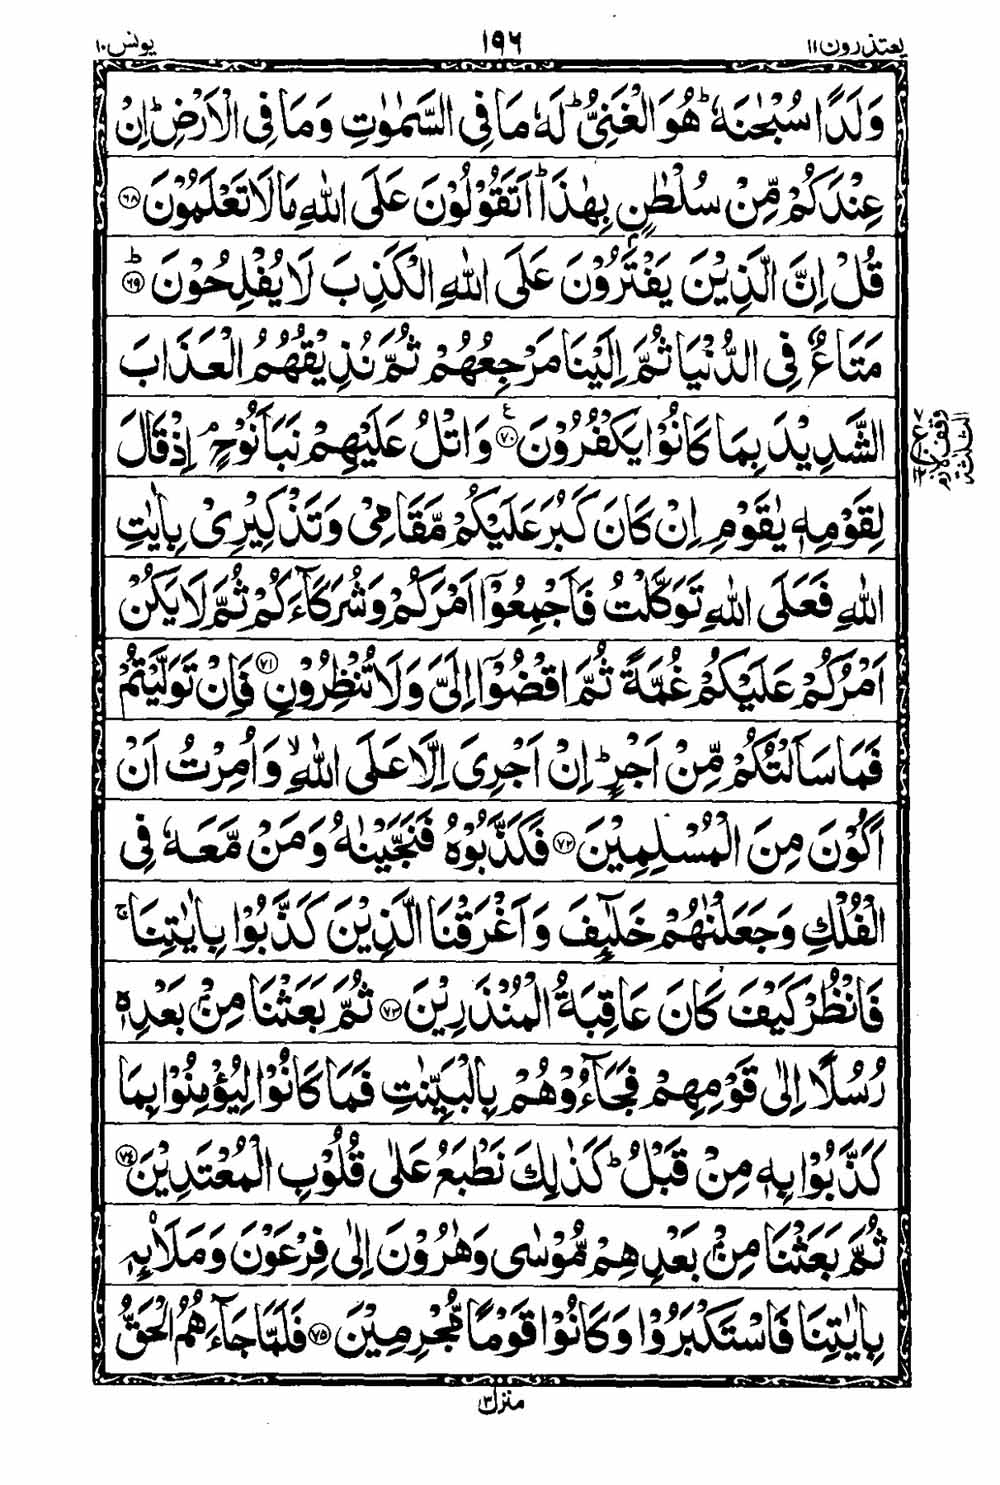 یعتذرون ۱۱
۱۹۶
یونس ۱۰
وَلَدًا سُبْحٰنَهٗ ؕ هُوَ الْغَنِیُّ ؕ لَهٗ مَا فِی السَّمٰوٰتِ وَمَا فِی الْاَرْضِ ؕ اِنْ
عِنْدَكُمْ مِّنْ سُلْطٰنٍۭ بِهٰذَا ؕ اَتَقُوْلُوْنَ عَلَی اللّٰهِ مَا لَا تَعْلَمُوْنَ ﴿۶۸﴾
قُلْ اِنَّ الَّذِیْنَ یَفْتَرُوْنَ عَلَی اللّٰهِ الْكَذِبَ لَا یُفْلِحُوْنَ ﴿۶۹﴾ؕ
مَتَاعٌ فِی الدُّنْیَا ثُمَّ اِلَیْنَا مَرْجِعُهُمْ ثُمَّ نُذِیْقُهُمُ الْعَذَابَ
الشَّدِیْدَ بِمَا كَانُوْا یَكْفُرُوْنَ ﴿۷۰﴾ع وَاتْلُ عَلَیْهِمْ نَبَاَ نُوْحٍ ۘ اِذْ قَالَ
لِقَوْمِهٖ یٰقَوْمِ اِنْ كَانَ كَبُرَ عَلَیْكُمْ مَّقَامِیْ وَتَذْكِیْرِیْ بِاٰیٰتِ
اللّٰهِ فَعَلَی اللّٰهِ تَوَكَّلْتُ فَاَجْمِعُوْۤا اَمْرَكُمْ وَشُرَكَآءَكُمْ ثُمَّ لَا یَكُنْ
اَمْرُكُمْ عَلَیْكُمْ غُمَّةً ثُمَّ اقْضُوْۤا اِلَیَّ وَلَا تُنْظِرُوْنِ ﴿۷۱﴾ فَاِنْ تَوَلَّیْتُمْ
فَمَا سَاَلْتُكُمْ مِّنْ اَجْرٍ ؕ اِنْ اَجْرِیَ اِلَّا عَلَی اللّٰهِ ۙ وَاُمِرْتُ اَنْ
اَكُوْنَ مِنَ الْمُسْلِمِیْنَ ﴿۷۲﴾ فَكَذَّبُوْهُ فَنَجَّیْنٰهُ وَمَنْ مَّعَهٗ فِی
الْفُلْكِ وَجَعَلْنٰهُمْ خَلٰٓىِٕفَ وَاَغْرَقْنَا الَّذِیْنَ كَذَّبُوْا بِاٰیٰتِنَا ۚ
فَانْظُرْ كَیْفَ كَانَ عَاقِبَةُ الْمُنْذَرِیْنَ ﴿۷۳﴾ ثُمَّ بَعَثْنَا مِنْۢ بَعْدِهٖ
رُسُلًا اِلٰی قَوْمِهِمْ فَجَآءُوْهُمْ بِالْبَیِّنٰتِ فَمَا كَانُوْا لِیُؤْمِنُوْا بِمَا
كَذَّبُوْا بِهٖ مِنْ قَبْلُ ؕ كَذٰلِكَ نَطْبَعُ عَلٰی قُلُوْبِ الْمُعْتَدِیْنَ ﴿۷۴﴾
ثُمَّ بَعَثْنَا مِنْۢ بَعْدِهِمْ مُّوْسٰی وَهٰرُوْنَ اِلٰی فِرْعَوْنَ وَمَلَا۟ىِٕهٖ
بِاٰیٰتِنَا فَاسْتَكْبَرُوْا وَكَانُوْا قَوْمًا مُّجْرِمِیْنَ ﴿۷۵﴾ فَلَمَّا جَآءَهُمُ الْحَقُّ
وقف لازم
الثلثة
منزل ۳